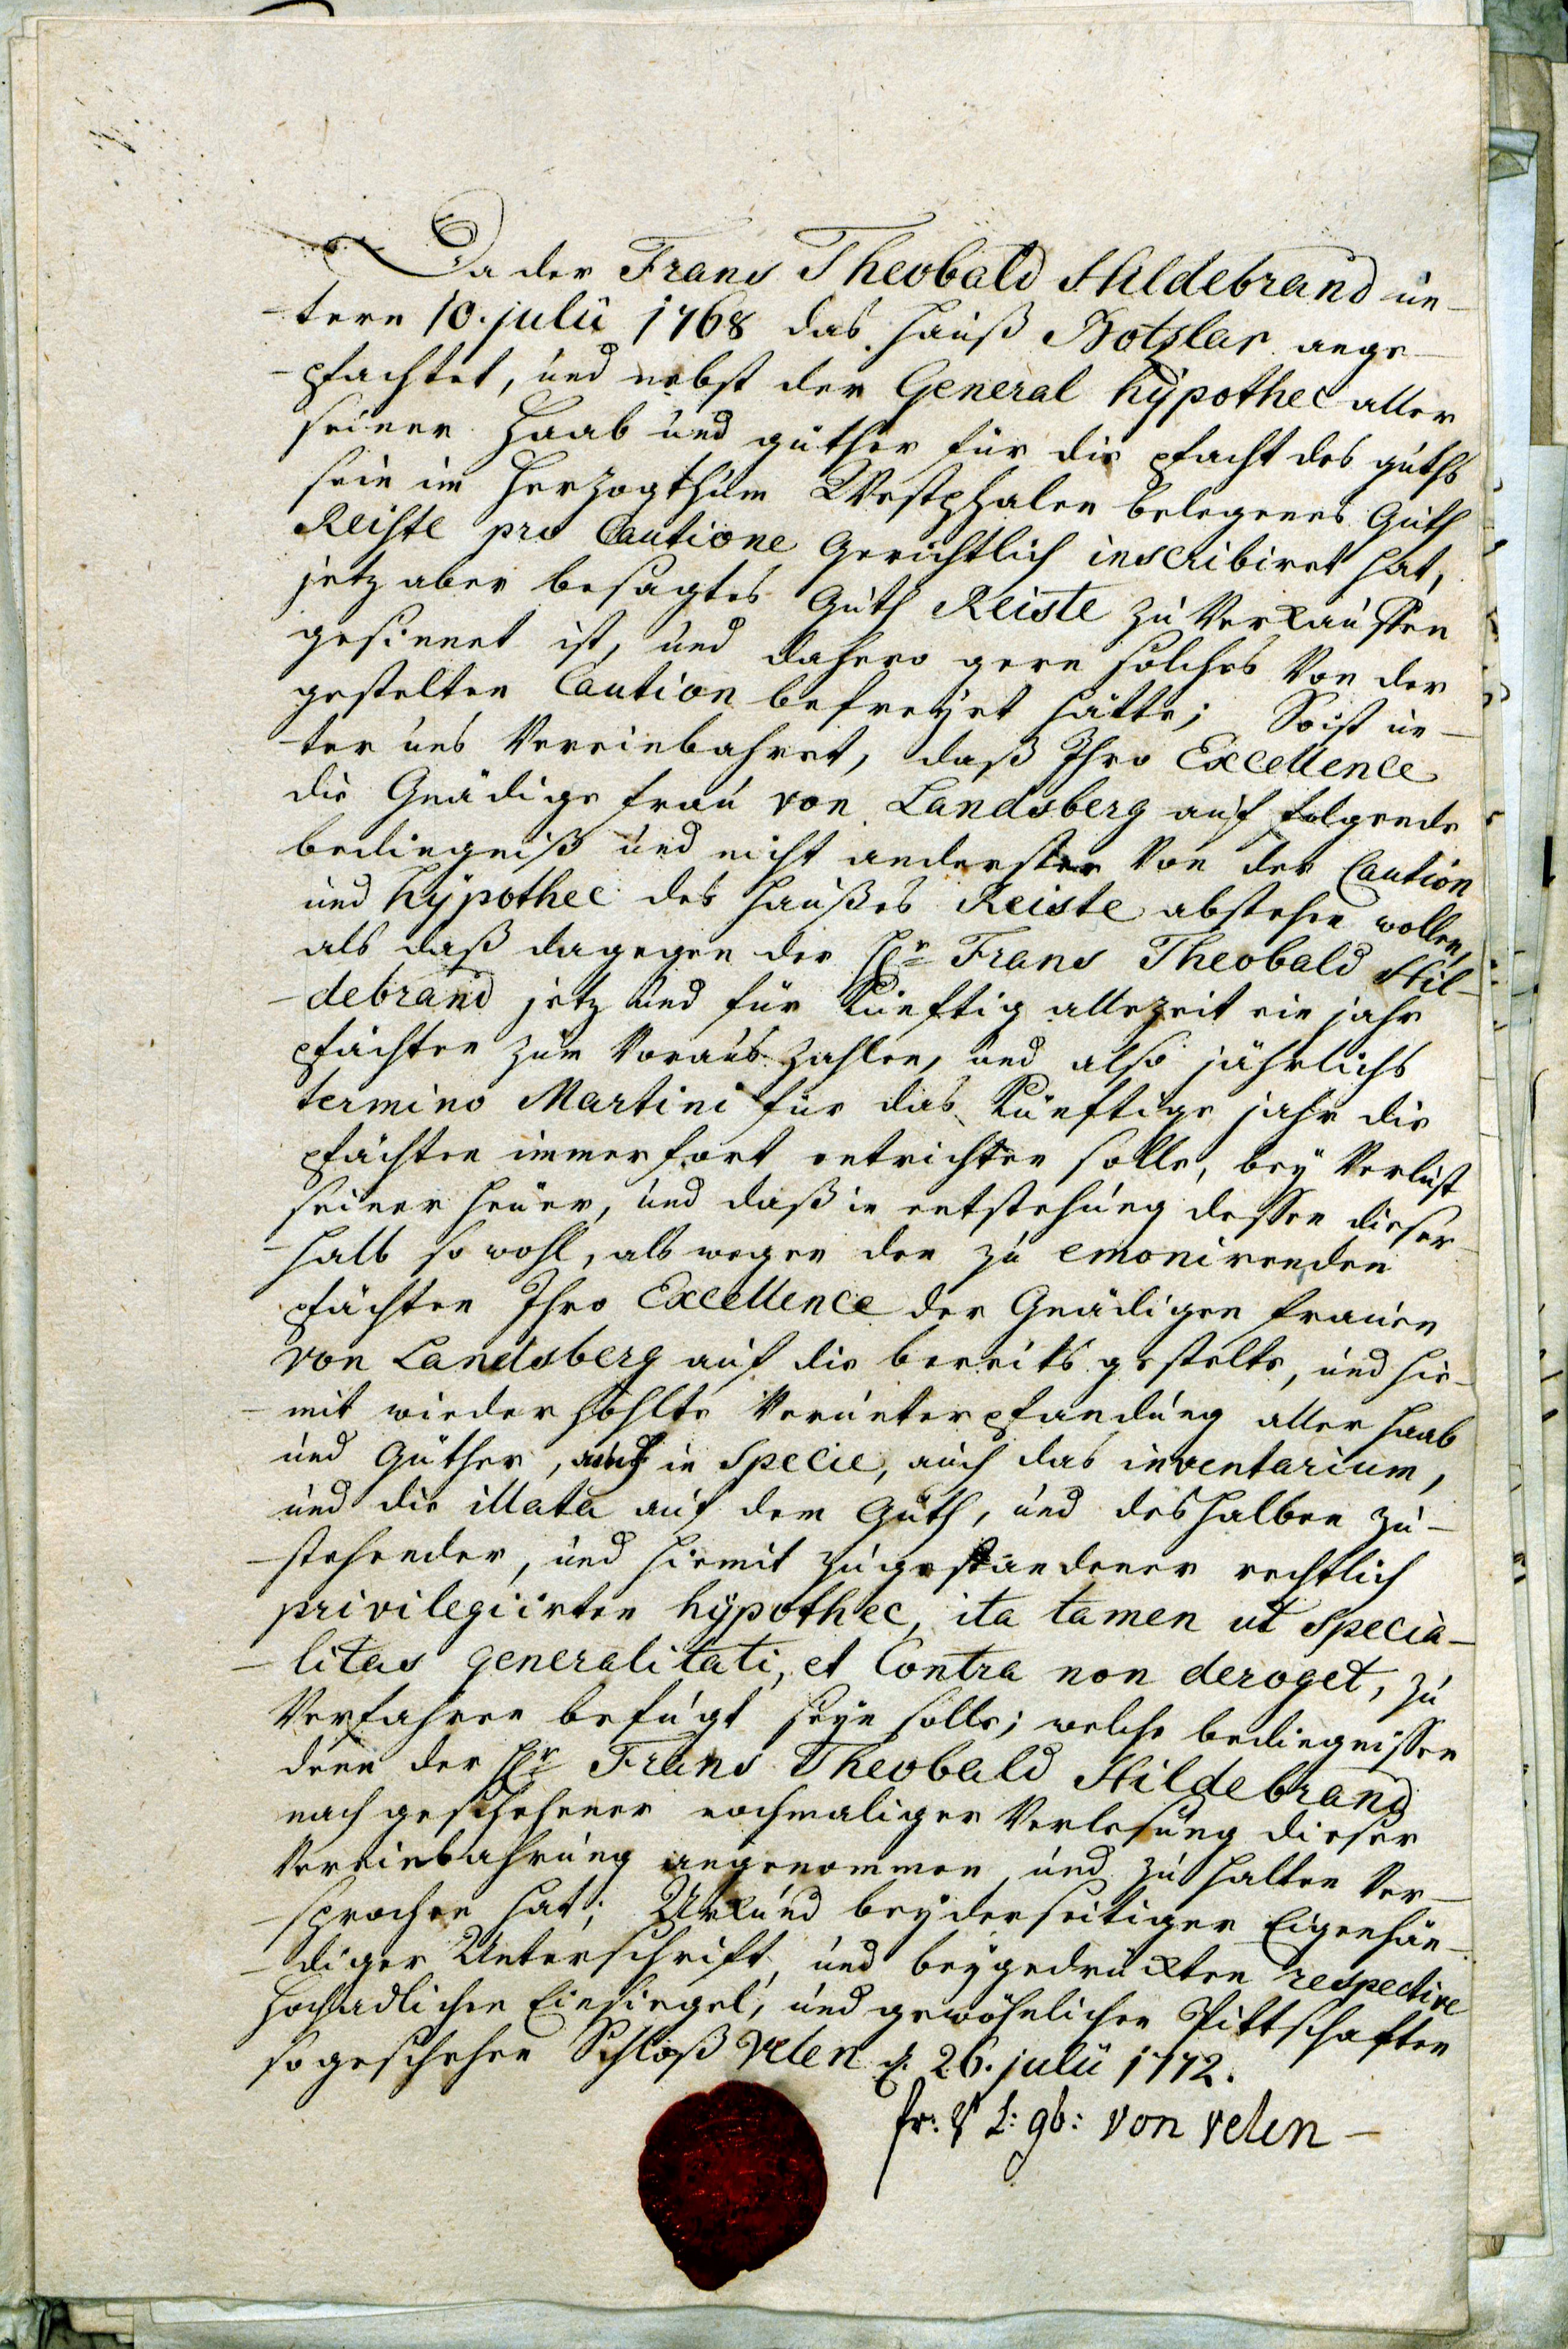 Da der Frans Theobald Hildebrand un-
-term 10. julii 1768 das Hauß Botzlar ange-
-pfachtet, und nebst der General hÿpothec aller
seiner Haab und güther für die pfacht des guths
sein im Herzogthum Westphalen belegenes Guth
Reiste pro Cautione Gerichtlich inscribiret hat,
jetz aber besagtes Guth Reiste zu Verkauffen
gesinnet ist, und dahero gern solches Von der
gestelten Caution befreÿet hätte; So ist un-
-ter uns Vereinbahret, daß Ihro Excellence
die Gnädige frau von Landsberg auf folgende
bedingniß und nicht anderster Von der Caution
und hÿpothec des Haußes Reiste abstehen wollen,
als daß dagegen der Hr Frans Theobald Hil-
-debrand jetz und für Künftig allezeit ein jahr
pfächten zum Voraus zahlen, und also jährlichs
termino Martini für das Künftige jahr die
pfächten immerfort entrichten solle, beÿ Verlust
seiner heuer, und daß in entstehung dessen dieser-
-halb so wohl, als wegen den zu emonirenden
pfächten Ihro Excellence der Gnädigen frauen
von Landsberg auf die bereits gestelte, und hie-
-mit wiederhohlte Verunterpfandung aller Haab
und Güther, auch in specie, auch das inventarium,
und die illata auf dem Guth, und deshalben zu-
-stehender, und hiemit zugestandener rechtlich
privilegiirten hÿpothec, ita tamen ut specia-
-litas generalitati, et Contra non deroget, zu
Verfahren befugt seÿn solle; welche bedingnissen
dann der Hr Frans Theobald Hildebrand
nach geschehener nochmaliger Verlesung dieser
Vereinbahrung angenommen, und zu halten Ver-
-sprochen hat; Urkund beÿderseitiger Eigenhän-
-diger Unterschrift, und beÿgedruckten respective
hochadlichen Einsiegel, und gewöhnlichen Pittschaften
so geschehen Schloß Velen d. 26. julii 1772.
fr: V L: gb: von velen